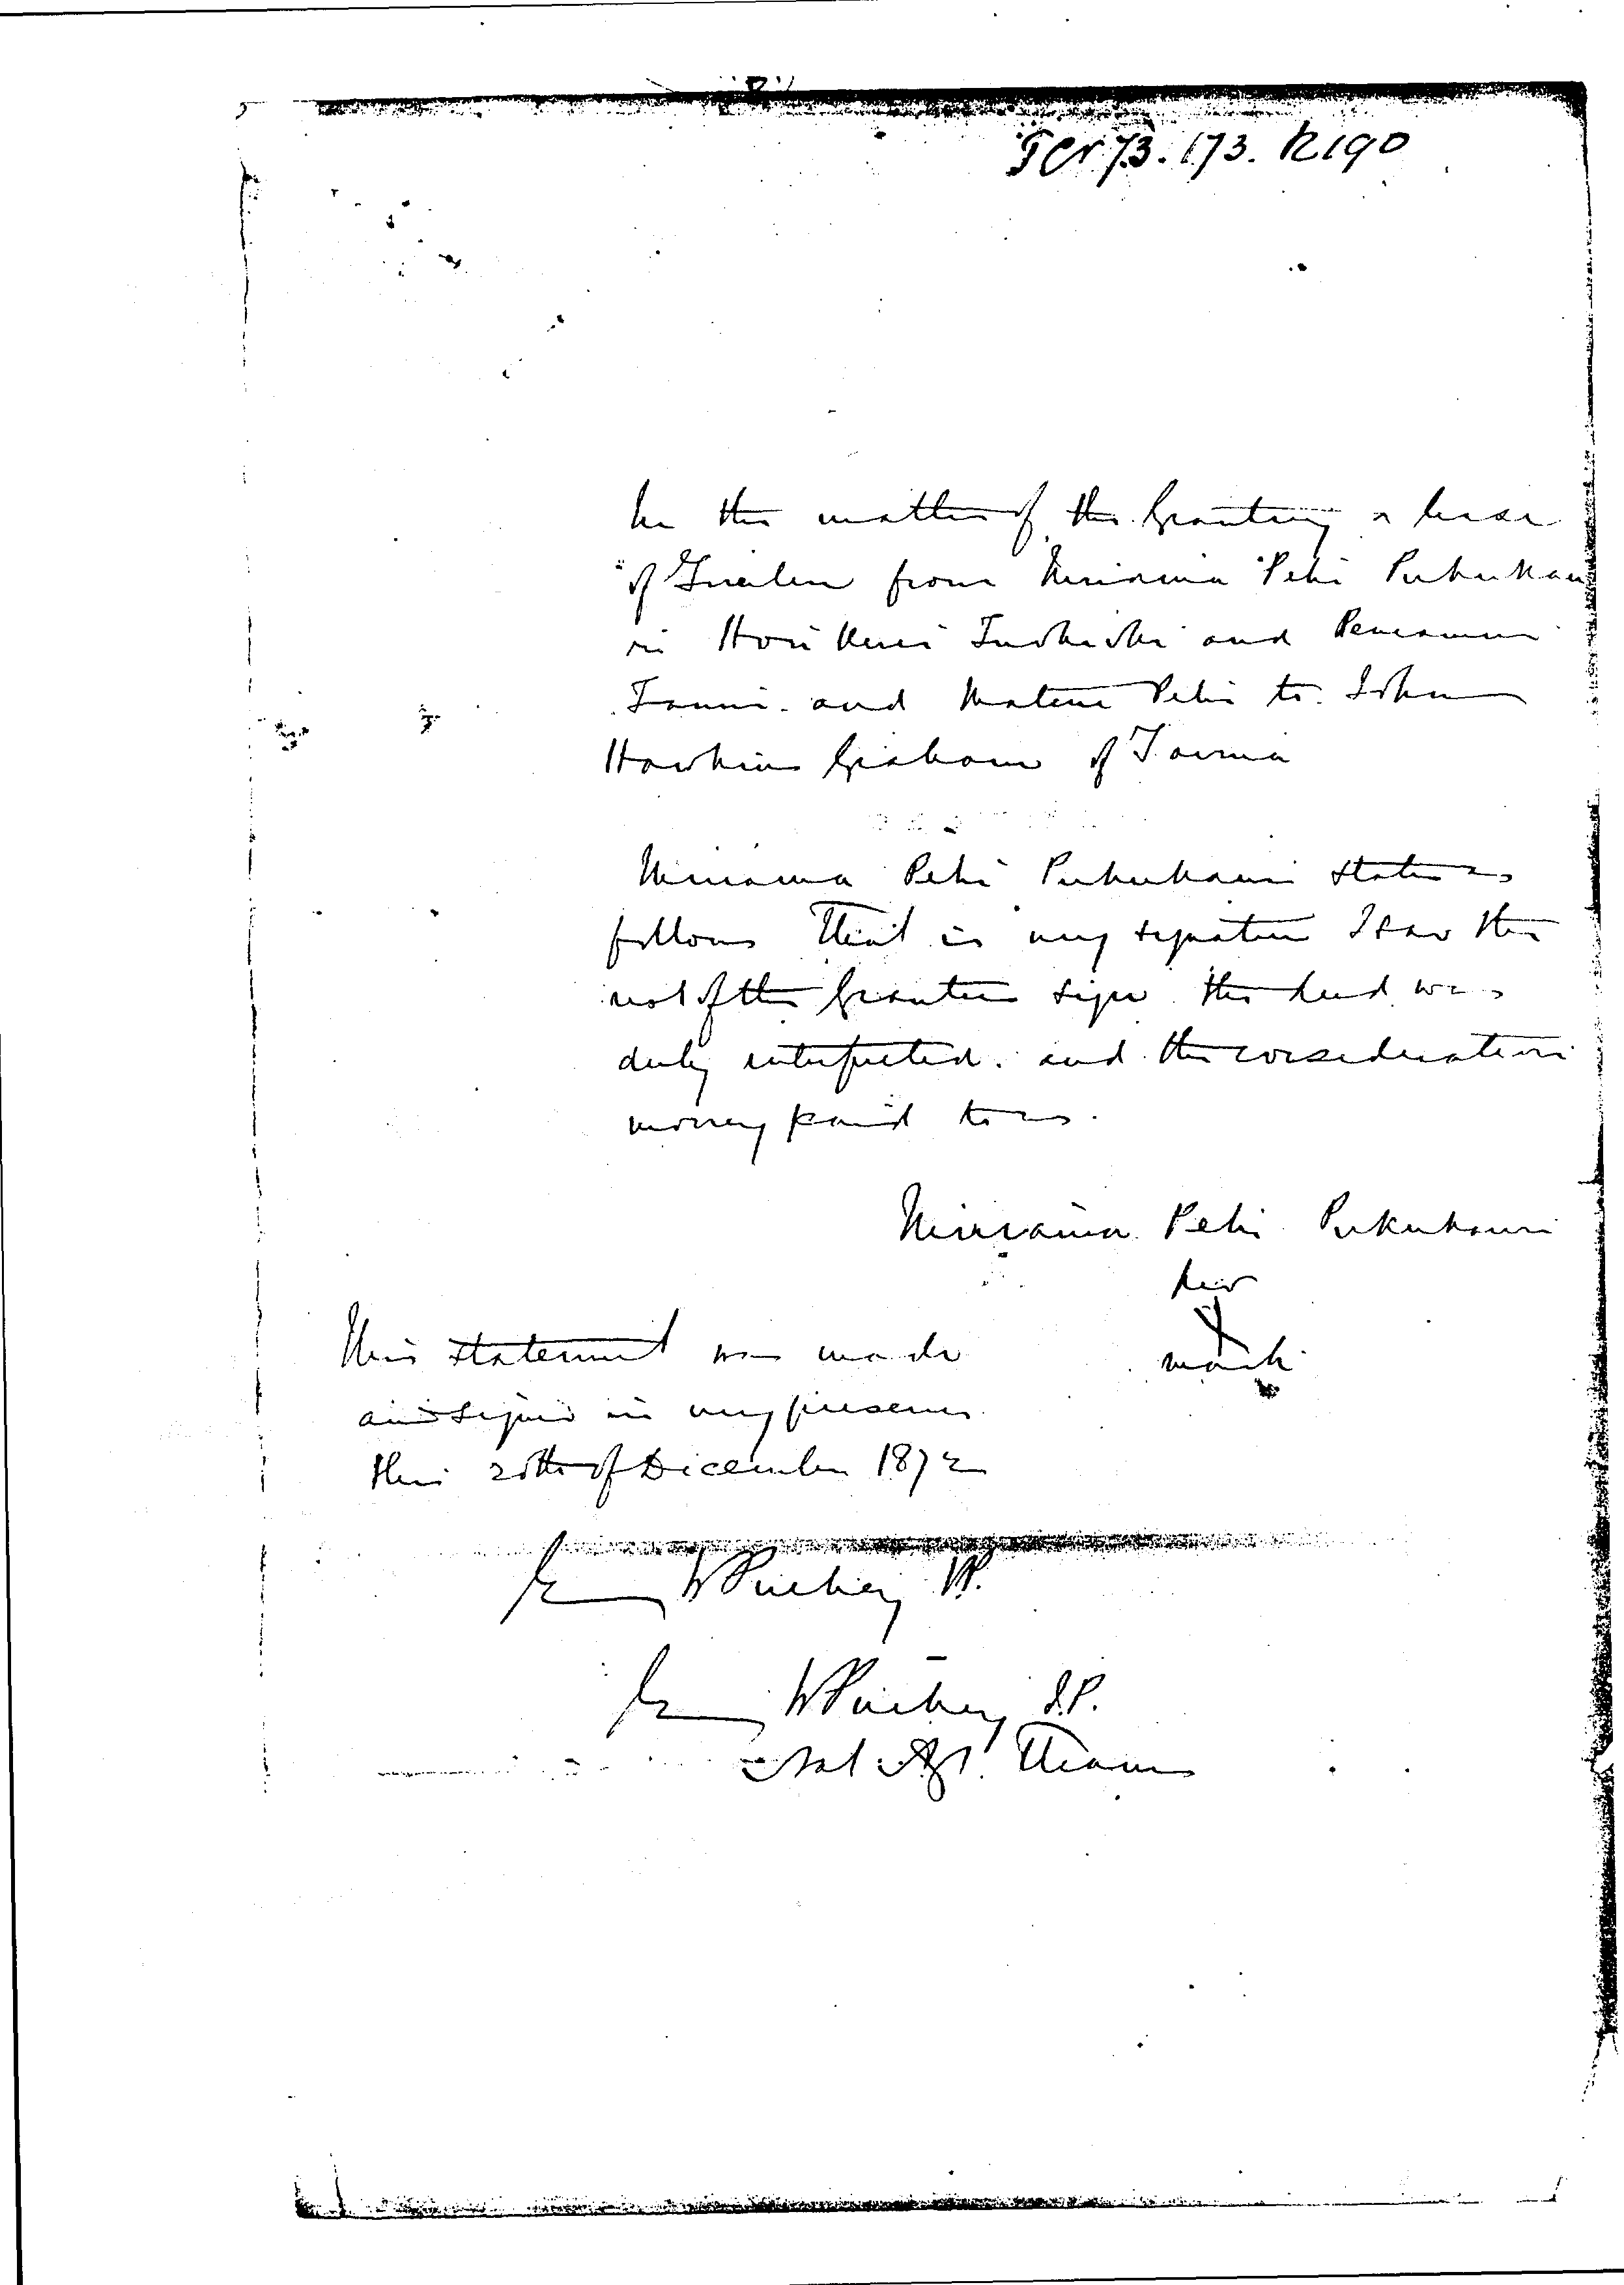 73.173. R190
In the matter of the Granting a lease
of from Miriama Pehi Pukukau
and
and Matene Pehi to John
Hawkins Graham of
Miriama Pehi Pukukauri states as
follows That is my signature I saw the
rest of the Grantees sign the deed was
duly interpreted. and the consideration
money paid to us.
Mirriama Pehi Pukukauri
her
mark
This statement was made
and signed in my presence
this 20th of December 1872
W Puckey JP.
W Puckey J.P.
Nat Agt Thames